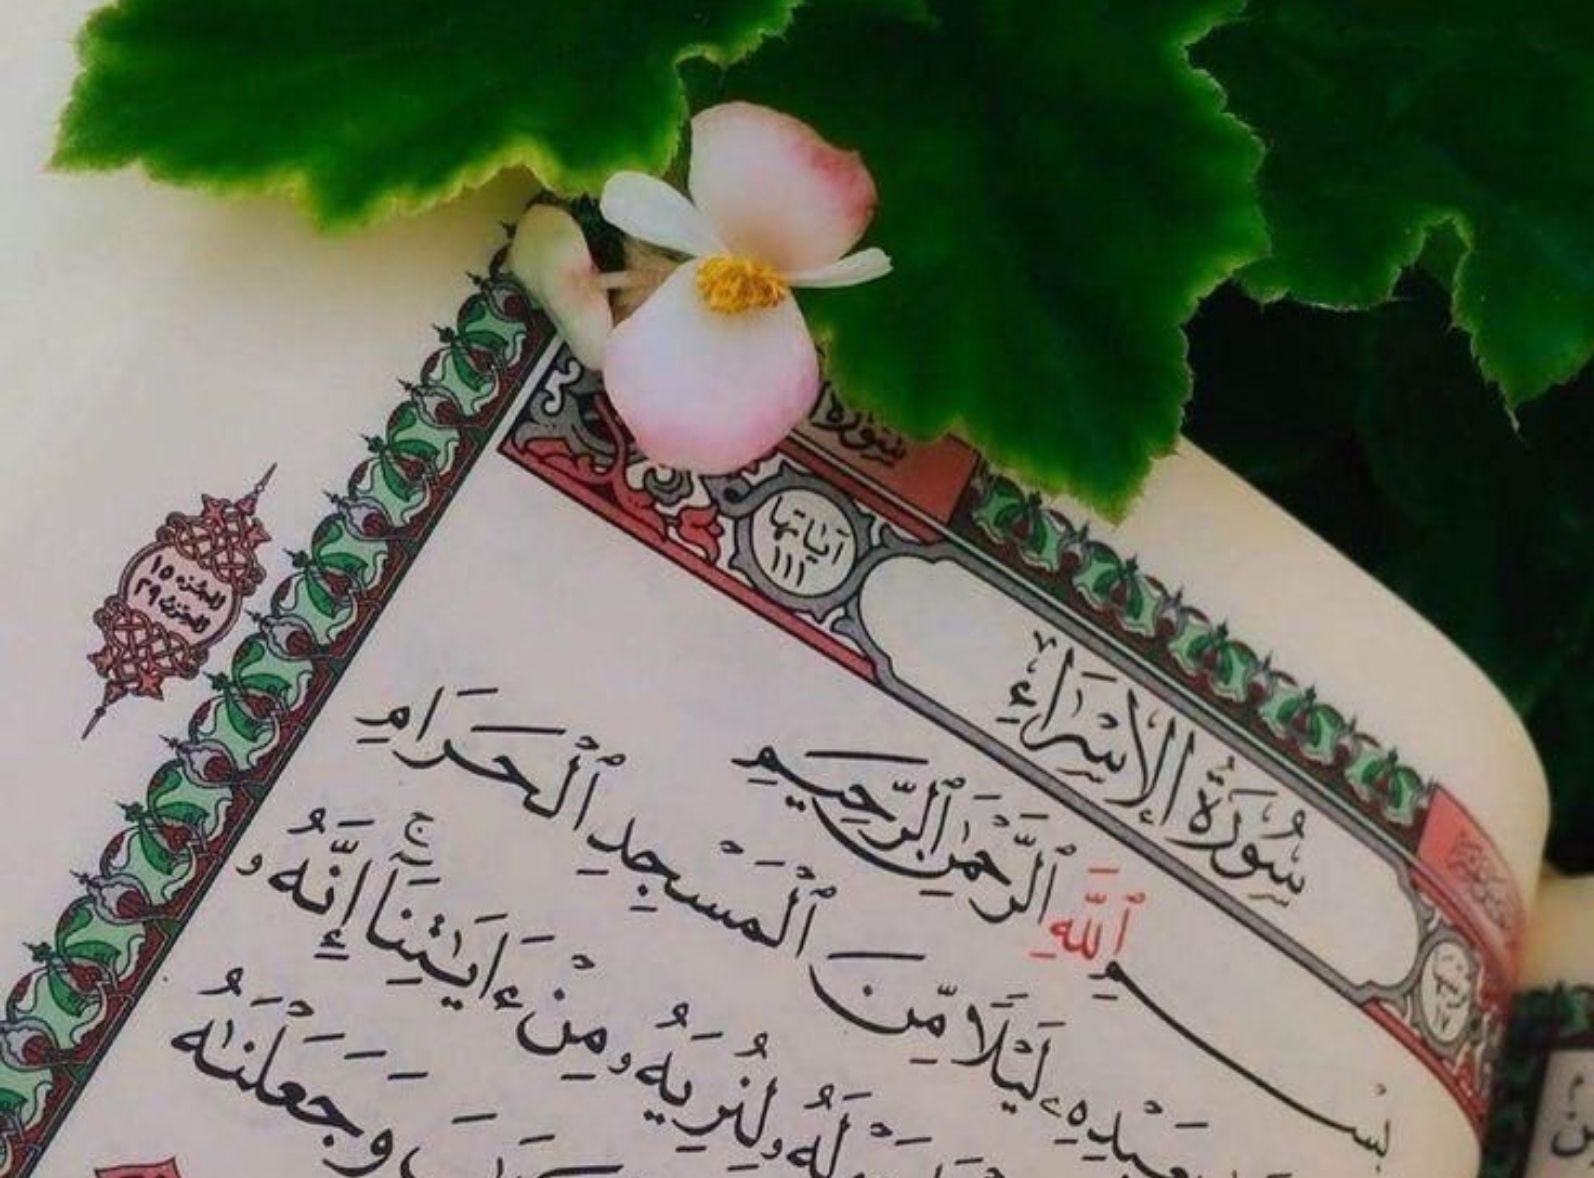 سُورَةُ
آيَاتهَا
١١١
سُورَةُ الإِسْرَاءِ
الجزء ١٥
الحزب ٢٩
بِسْمِ ٱللَّهِ ٱلرَّحْمَٰنِ ٱلرَّحِيمِ
بِعَبْدِهِۦ لَيْلًا مِّنَ ٱلْمَسْجِدِ ٱلْحَرَامِ
لَهُۥ لِنُرِيَهُۥ مِنْ ءَايَٰتِنَآ ۚ إِنَّهُۥ
وَجَعَلْنَٰهُ